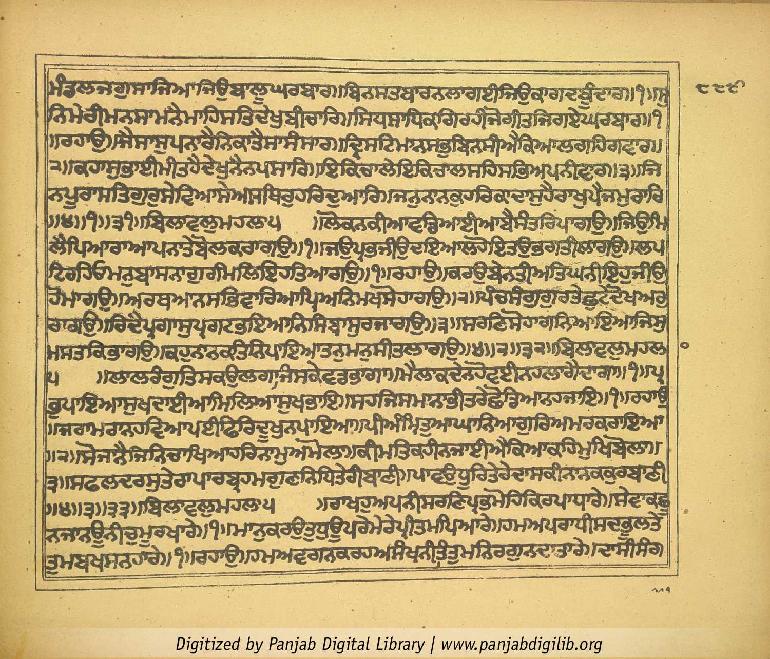 ਮੰਡਲਜਗੁਸਾਜਿਆਜਿਉਬਾਲੂਘਰਬਾਰ॥ਬਿਨਸਤਬਾਰਨਲਾਗਈਜਿਉਕਾਗਦਬੂੰਦਾਰ॥੧॥ਸੁ
ਨਿਮੇਰੀਮਨਸਾਮਨੈਮਾਹਿਸਤਿਦੇਖੁਬੀਚਾਰਿ॥ਸਿਧਸਾਧਿਕਗਿਰਹੀਜੋਗੀਤਜਿਗਏਘਰਬਾਰ॥੧
॥ਰਹਾਉ॥ਜੈਸਾਸੁਪਨਾਰੈਨਿਕਾਤੈਸਾਸੰਸਾਰ॥ਦ੍ਰਿਸਟਿਮਾਨਸਭੁਬਿਨਸੀਐਕਿਆਲਗਹਿਗਵਾਰ॥
੨॥ਕਹਾਸੁਭਾਈਮੀਤਹੈਦੇਖੁਨੈਨਪਸਾਰਿ॥ਇਕਿਚਾਲੇਇਕਿਚਾਲਸਹਿਸਭਿਅਪਨੀਵਾਰ॥੩॥ਜਿ
ਨਪੂਰਾਸਤਿਗੁਰੁਸੇਵਿਆਸੇਅਸਥਿਰੁਹਰਿਦੁਆਰਿ॥ਜਨੁਨਾਨਕੁਹਰਿਕਾਦਾਸੁਹੈਰਾਖੁਪੈਜਮੁਰਾਰਿ
॥੪॥੧॥੩੧॥ਬਿਲਾਵਲੁਮਹਲਾ੫ ॥ਲੋਕਨਕੀਆਵਡਿਆਈਆਬੈਸੰਤਰਿਪਾਗਉ॥ਜਿਉਮਿ
ਲੈਪਿਆਰਾਆਪਨਾਤੇਬੋਲਕਰਾਗਉ॥੧॥ਜਉਪ੍ਰਭਜੀਉਦਇਆਲਹੋਇਤਉਭਗਤੀਲਾਗਉ॥ਲਪ
ਟਿਰਹਿਓਮਨੁਬਾਸਨਾਗੁਰਮਿਲਿਇਹਤਿਆਗਉ॥੧॥ਰਹਾਉ॥ਕਰਉਬੇਨਤੀਅਤਿਘਨੀਇਹੁਜੀਉ
ਹੋਮਾਗਉ॥ਅਰਥਆਨਸਭਿਵਾਰਿਆਪ੍ਰਿਅਨਿਮਖਸੋਹਾਗਉ॥੨॥ਪੰਚਸੰਗੁਗੁਰਤੇਛੁਟੇਦੋਖਅਰੁ
ਰਾਗਉ॥ਰਿਦੈਪ੍ਰਗਾਸੁਪ੍ਰਗਟਭਇਆਨਿਸਿਬਾਸੁਰਜਾਗਉ॥੩॥ਸਰਣਿਸੋਹਾਗਨਿਆਇਆਜਿਸੁ
ਮਸਤਕਿਭਾਗਉ॥ਕਹੁਨਾਨਕਤਿਨਿਪਾਇਆਤਨੁਮਨੁਸੀਤਲਾਗਉ॥੪॥੨॥੩੨॥ਬਿਲਾਵਲੁਮਹਲਾ
੫ ॥ਲਾਲਰੰਗੁਤਿਸਕਉਲਗਾਜਿਸਕੇਵਡਭਾਗਾ॥ਮੈਲਾਕਦੇਨਹੋਵਈਨਹਲਾਗੈਦਾਗਾ॥੧॥ਪ੍ਰ
ਭੁਪਾਇਆਸੁਖਦਾਈਆਮਿਲਿਆਸੁਖਭਾਇ॥ਸਹਜਿਸਮਾਨਾਭੀਤਰੇਛੋਡਿਆਨਹਜਾਇ॥੧॥ਰਹਾਉ
॥ਜਰਾਮਰਾਨਹਵਿਆਪਈਫਿਰਿਦੂਖੁਨਪਾਇਆ॥ਪੀਅੰਮ੍ਰਿਤੁਆਘਾਨਿਆਗੁਰਿਅਮਰੁਕਰਾਇਆ
॥੨॥ਸੋਜਾਨੈਜਿਨਿਚਾਖਿਆਹਰਿਨਾਮੁਅਮੋਲਾ॥ਕੀਮਤਿਕਹੀਨਜਾਈਐਕਿਆਕਹਿਮੁਖਿਬੋਲਾ॥
੩॥ਸਫਲਦਰਸੁਤੇਰਾਪਾਰਬ੍ਰਹਮਗੁਣਨਿਧਿਤੇਰੀਬਾਣੀ॥ਪਾਵਉਧੂਰਿਤੇਰੇਦਾਸਕੀਨਾਨਕਕੁਰਬਾਣੀ
॥੪॥੩॥੩੩॥ਬਿਲਾਵਲੁਮਹਲਾ੫ ॥ਰਾਖਹੁਅਪਨੀਸਰਣਿਪ੍ਰਭਮੋਹਿਕਿਰਪਾਧਾਰੇ॥ਸੇਵਾਕਛੂ
ਨਜਾਨਉਨੀਚੁਮੂਰਖਾਰੇ॥੧॥ਮਾਨੁਕਰਉਤੁਧੁਊਪਰੇਮੇਰੇਪ੍ਰੀਤਮਪਿਆਰੇ॥ਹਮਅਪਰਾਧੀਸਦਭੂਲਤੇ
ਤੁਮਬਖਸਨਹਾਰੇ॥੧॥ਰਹਾਉ॥ਹਮਅਵਗਨਕਰਹਅਸੰਖਨੀਤਿਤੁਮਨਿਰਗੁਨਦਾਤਾਰੇ॥ਦਾਸੀਸੰਗ
Digitized by Panjab Digital Library | www.panjabdigilib.org